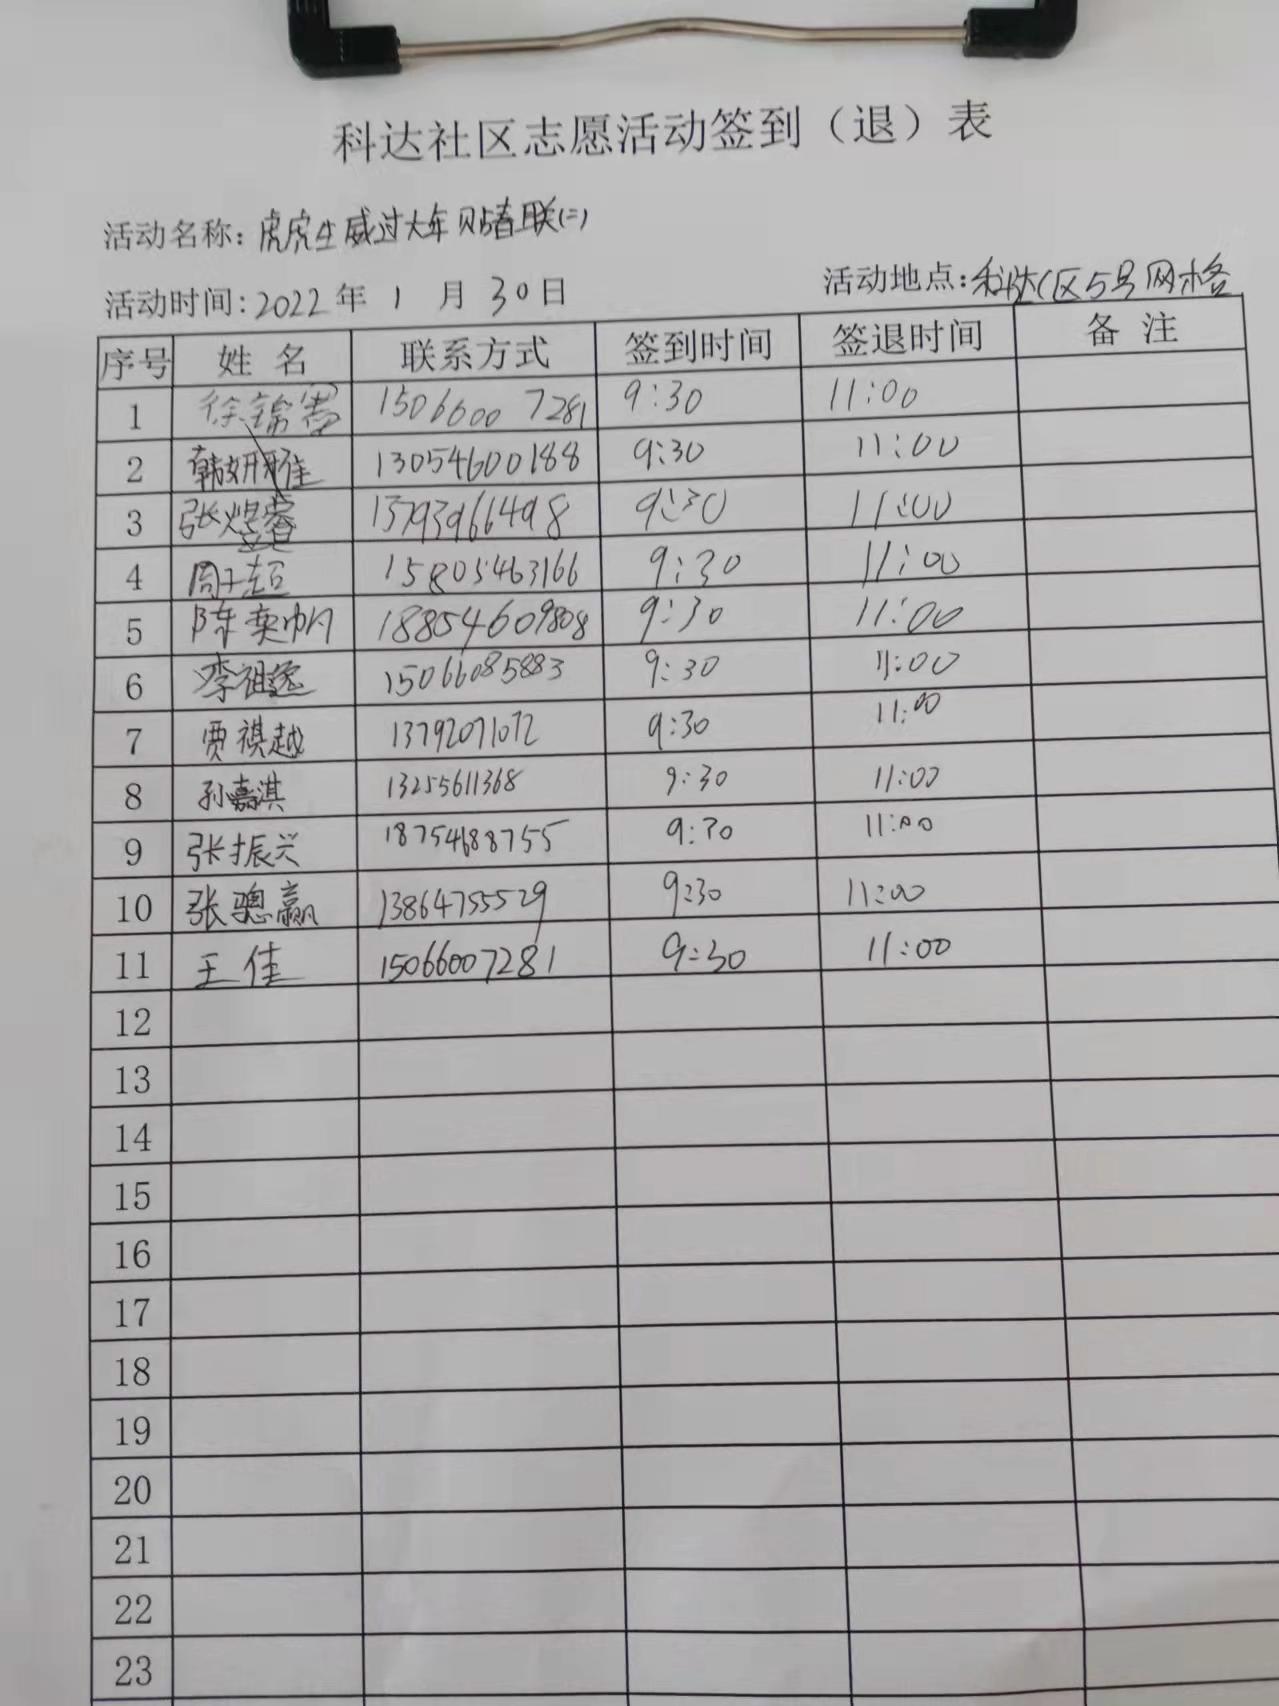 科达社区志愿活动签到（退）表
活动名称: 虎虎生威过大年 贴春联(二)
活动时间: 2022 年 1 月 30 日 活动地点: 科达C区5号网格
序号 姓名 联系方式 签到时间 签退时间 备注
1 徐锦 15066007281 9:30 11:00
2 韩妍雅 13054600188 9:30 11:00
3 张煜睿 13793966498 9:30 11:00
4 周子超 15805463166 9:30 11:00
5 陈奕帆 18854609808 9:30 11:00
6 李祖逸 15066085883 9:30 11:00
7 贾祺越 13792071072 9:30 11:00
8 孙嘉淇 13255611368 9:30 11:00
9 张振兴 18754688755 9:30 11:00
10 张骢赢 13864755529 9:30 11:00
11 王佳 15066007281 9:30 11:00
12
13
14
15
16
17
18
19
20
21
22
23